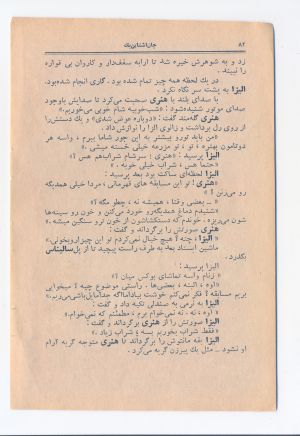 ۸۲ جان اشتاین‌بك
زد و به شوهرش خیره شد تا ارابه سقف‌دار و کاروان بی قواره
را نبیند.
در یك لحظه همه چیز تمام شده بود. گاری انجام شده‌بود.
الیزا به پشت سر نگاه نکرد.
با صدای بلند با هنری صحبت می‌کرد تا صدایش باوجود
صدای موتور شنیده‌شود: «شب‌خوبیه شام خوبی می‌خوریم.»
هنری گله‌مند گفت: «دوباره عوض شدی» و یك دستش‌را
از روی رل برداشت و زانوی الیزا را نوازش داد.
«من باید تورو بیشتر به این جور شاما ببرم. واسه هر
دوتامون بهتره، تو، تو مزرعه خیلی خسته میشی.»
الیزا پرسید: «هنری! سرشام شراب‌هم هس؟»
«حتما هس، شراب خیلی خوبه.»
الیزا لحظه‌ای ساکت بود بعد پرسید:
«هنری! تو این مسابقه های قهرمانی، مردا خیلی همدیگه
رو می‌زنن؟»
«- بعضی وقتا، همیشه نه، چطو مگه؟»
«شنیدم دماغ همدیگه‌رو خورد می‌کنن و خون رو سینه‌ها
شون می‌ریزه. خوندم که دستکشاشون از خون ترو سنگین میشه.»
هنری صورتش را برگرداند و گفت:
«الیزا، چته؟ هیچ خیال نمی‌کردم تو این چیزاروبخونی.»
ماشین ایستاد بعد به طرف راست پیچید تا از پل‌سالیناس
بگذرد.
الیزا پرسید:
«زنام واسه تماشای بوکس میان؟»
«اوه، البته، بعضی‌ها. راستی موضوع چیه؟ میخوایی
بریم مسابقه؟ فکر نمی‌کنم خوشت بیاداماگه جداً مایل‌باشی‌می‌ریم.»
الیزا به نرمی به صندلی تکیه داد و گفت:
«اوه، نه. نه نمی‌خوام برم، مطمئنم که نمی‌خوام.»
الیزا صورتش را از هنری برگرداند و گفت:
«فقط شراب بخوریم بسه؟ شراب زیاد.»
الیزا یقه مانتوش را برگرداند تا هنری متوجه گریه آرام
او نشود... مثل یك پیرزن گریه می‌کرد.